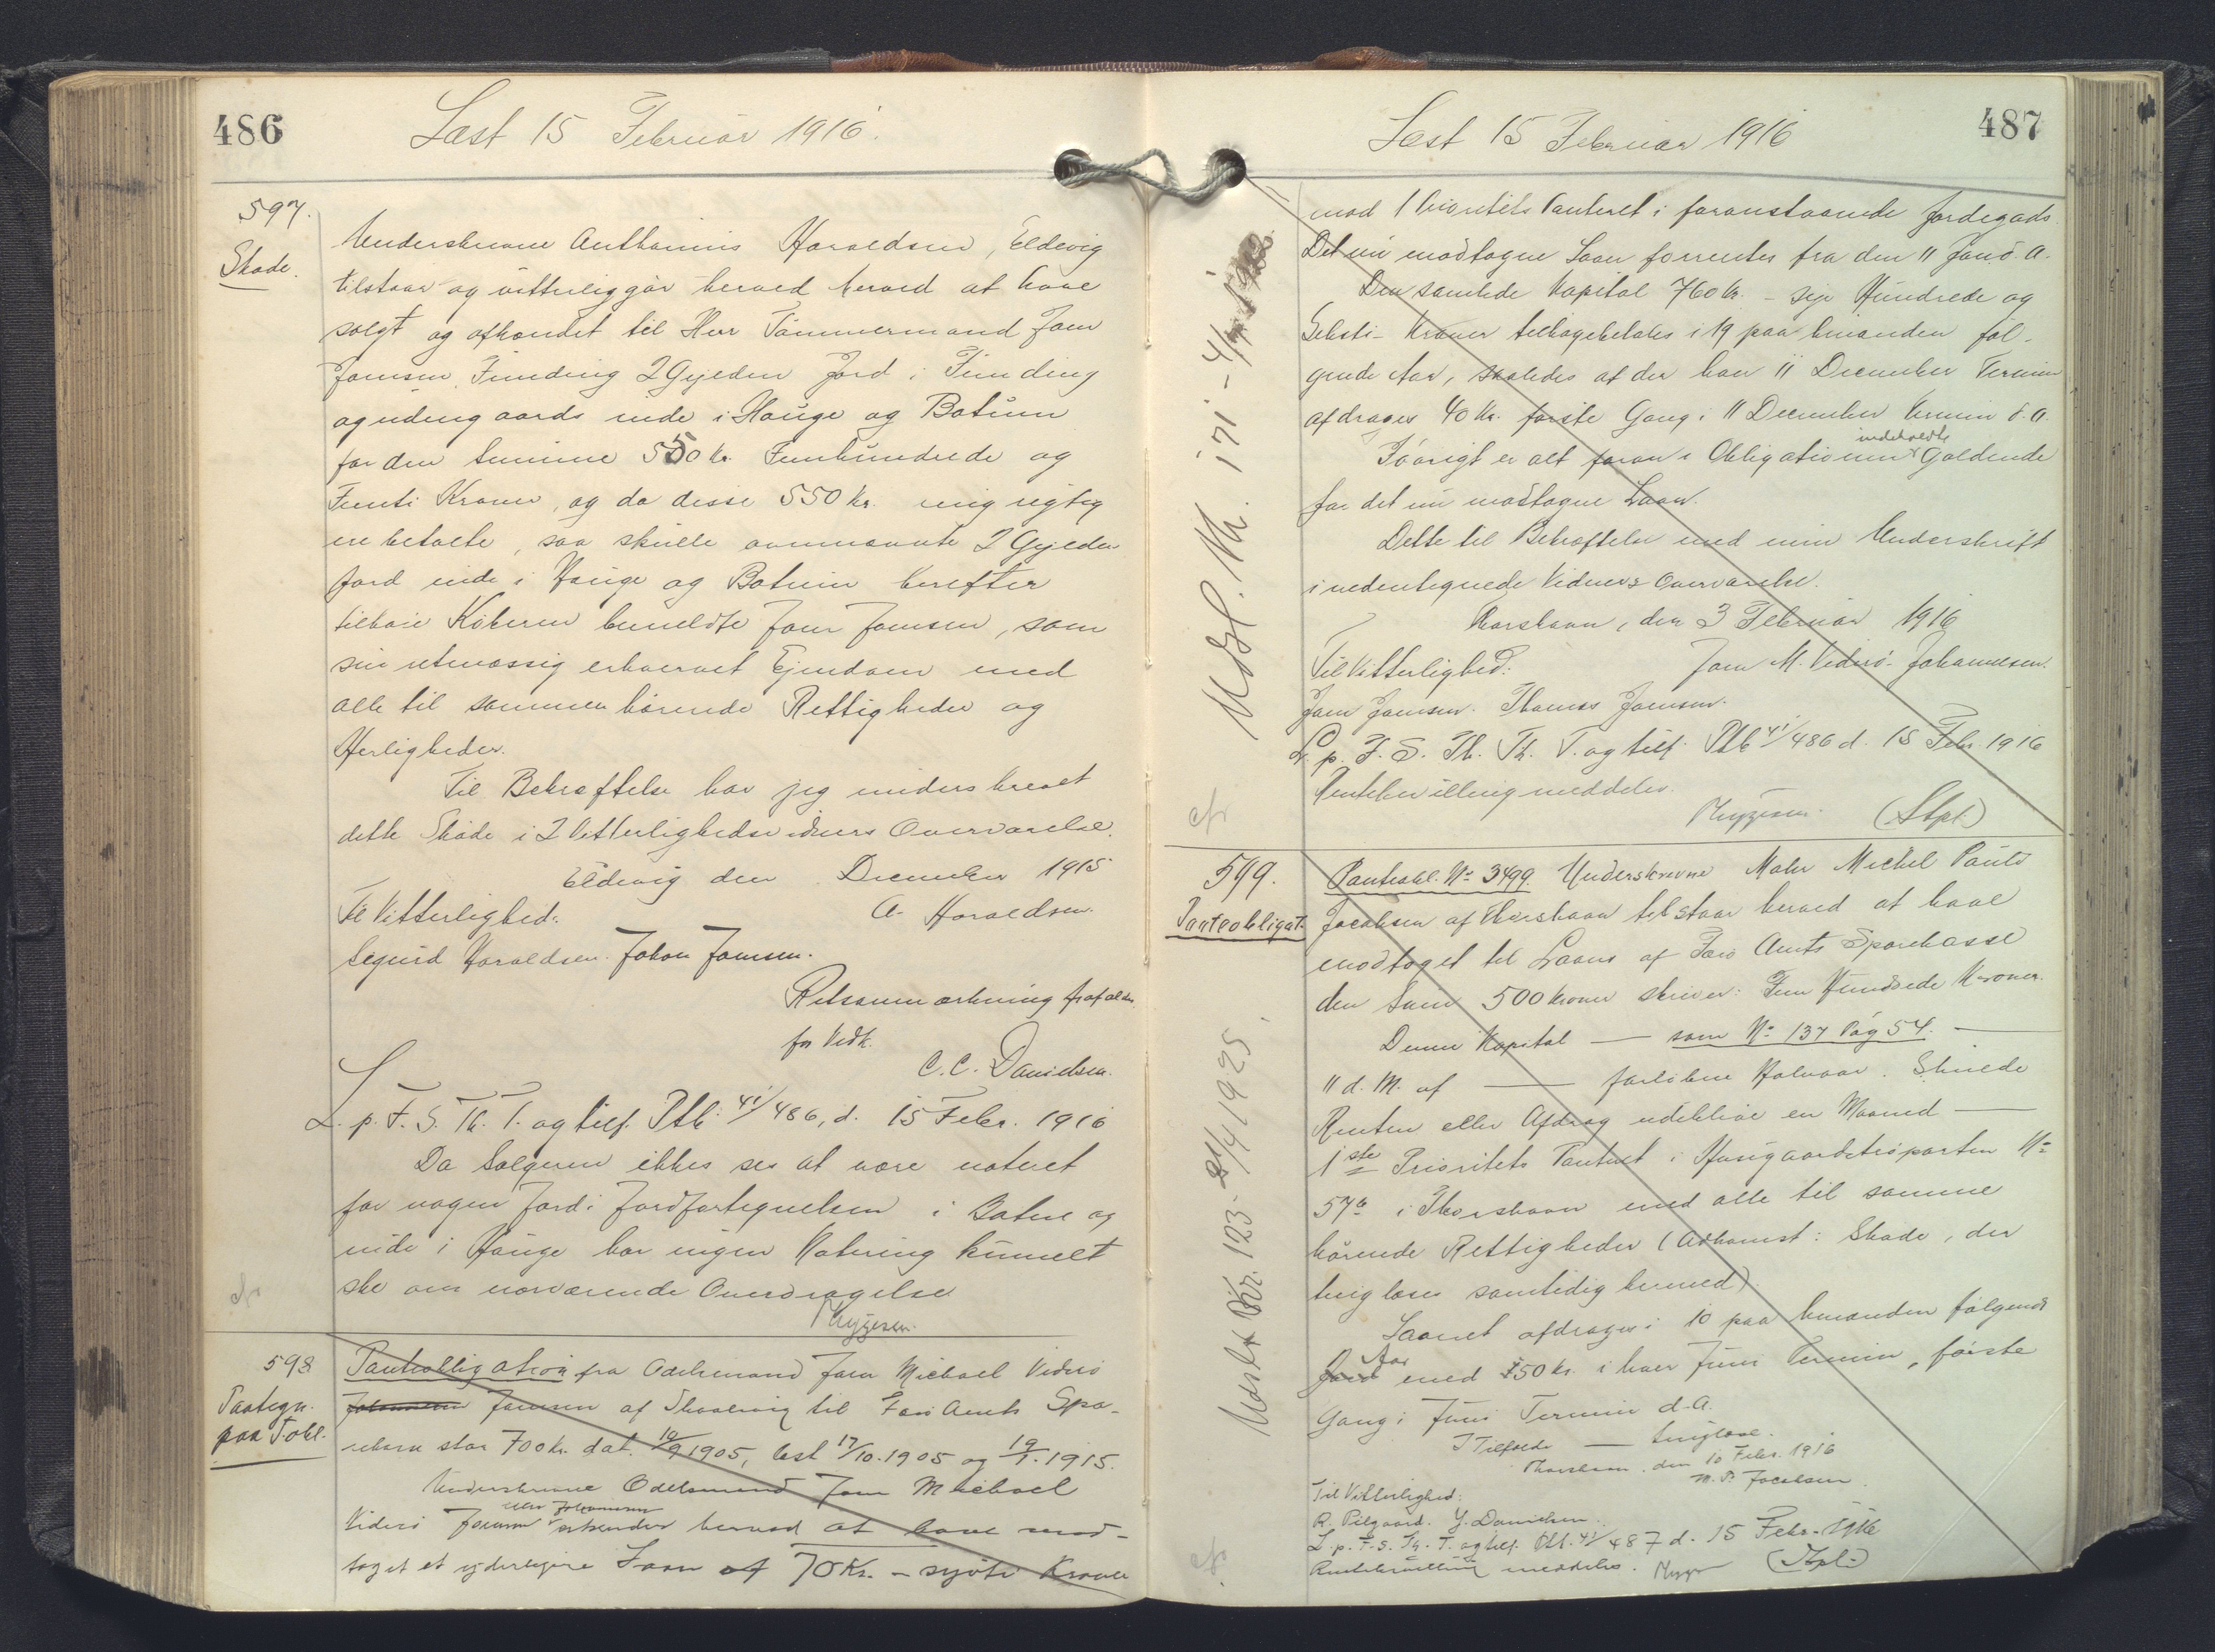 486
Læst 15 Februar 1916.
597.
Skøde.
Underskrevne Anthonius Haraldsen, Eldevig
tilstaar og vitterliggør herved herved at have
solgt og afhændet til Herr Tømmermand Joen
Joensen, Funding 2 Gylden Jord i Funding
og udengaards inde i Hauge og Botnum
for den Summe 550 Kr. Femhundrede og
Femti Kroner, og da disse 550 Kr. mig rigtig
ere betalte, saa skulle ovennævnte 2 Gylden
Jord inde i Hauge og Botnum herefter
tilhøre Køberen bemeldte Joen Joensen, som
sin retmæssig erhvervet Ejendom med
alle til sammen hørende Rettigheder og
Herligheder.
Til Bekræftelse har jeg underskrevet
dette Skøde i 2 Vitterlighedsvidners Overværelse.
Eldevig den December 1915
A. Haraldsen.
Til Vitterlighed:
Sigurd Haraldsen. Johan Joensen.
Retsanmærkning frafaldes
for Vedk.
C. C. Danielsen.
L. p. F. S. Th. T. og tilf. Ptb. 41/486, d. 15 Febr. 1916
Da Sælgeren ikke ses at være noteret
for nogen Jord i Jordfortegnelsen i Botne og
inde i Hauge har ingen Notering kunnet
ske om nærværende Overdragelse
598
Paategn.
paa P.obl.
Panteobligation fra Odelsmand Joen Michael Viderø
Johannesen Joensen af Thorsvig til Færø Amts Spa-
rekasse stor 700 Kr. dat. 10/9 1905, læst 17/10.1905 og 19/1.1915.
Underskrevne Odelsmand Joen Michael
Viderø Joensen eller Johannesen erkender herved at have mod-
taget et yderligere Laan af 70 Kr. - syvti Kroner
487
Læst 15 Februar 1916
mod 1 Prioritets Panteret i foranstaaende Jordegods.
Det nu modtagne Laan forrentes fra den 11 Jan. d. A.
Den samlede Kapital 760 Kr. - syv Hundrede og
Seksti - Kroner tilbagebetales i 19 paa hinanden føl-
gende Aar, saaledes at der hver 11 December Termin
afdrages 40 Kr. første Gang i 11 December Termin d. A.
Iøvrigt er alt foran i Obligationen indeholdte Gældende
for det nu modtagne Laan.
Dette til Bekræftelse med min Underskrift
i nedentegnede Vidners Overværelse.
Thorshavn, den 3 Februar 1916
Til Vitterlighed:
Joen M. Viderø-Johannesen.
Joen Joensen. Thomas Joensen.
L. p. F. S. Th. Th. T. og tilf. Ptb 41/486 d. 15 Febr. 1916
Rentebevilling meddeles.
(Stpl.)
599.
Panteobligat.
Panteobl. No 3499. Underskrevne Maler Michel Paulo
Jacobsen af Thorshavn tilstaar herved at have
modtaget til Laans af Færø Amts Sparekasse
den Sum 500 Kroner skriver: Fem Hundrede Kroner.
Denne Kapital — som No 137 Pag 54. —
11 d. M. af — forløbne Halvaar. Skulde
Renten eller Afdrag udeblive en Maaned —
1ste Prioritets Panteret i Husgaardstrøparten No
57a i Thorshavn med alle til samme
hørende Rettigheder (Adkomst: Skøde, der
tinglæses samtidig hermed).
Laanet afdrages i 10 paa hinanden følgende
Aar med 50 Kr. i hver Juni Termin, første
Gang i Juni Termin d. A.
I Tilfælde — tinglæse.
Thorshavn, den 10 Febr. 1916
M. P. Jacobsen
Til Vitterlighed:
R. Pilgaard. J. Danielsen.
L. p. F. S. Th. T. og tilf. Ptb. 41/487 d. 15 Febr. 1916
Rentebevilling meddeles.
(Stpl.)
Udslt Nr. 123 - 21/4 1925.